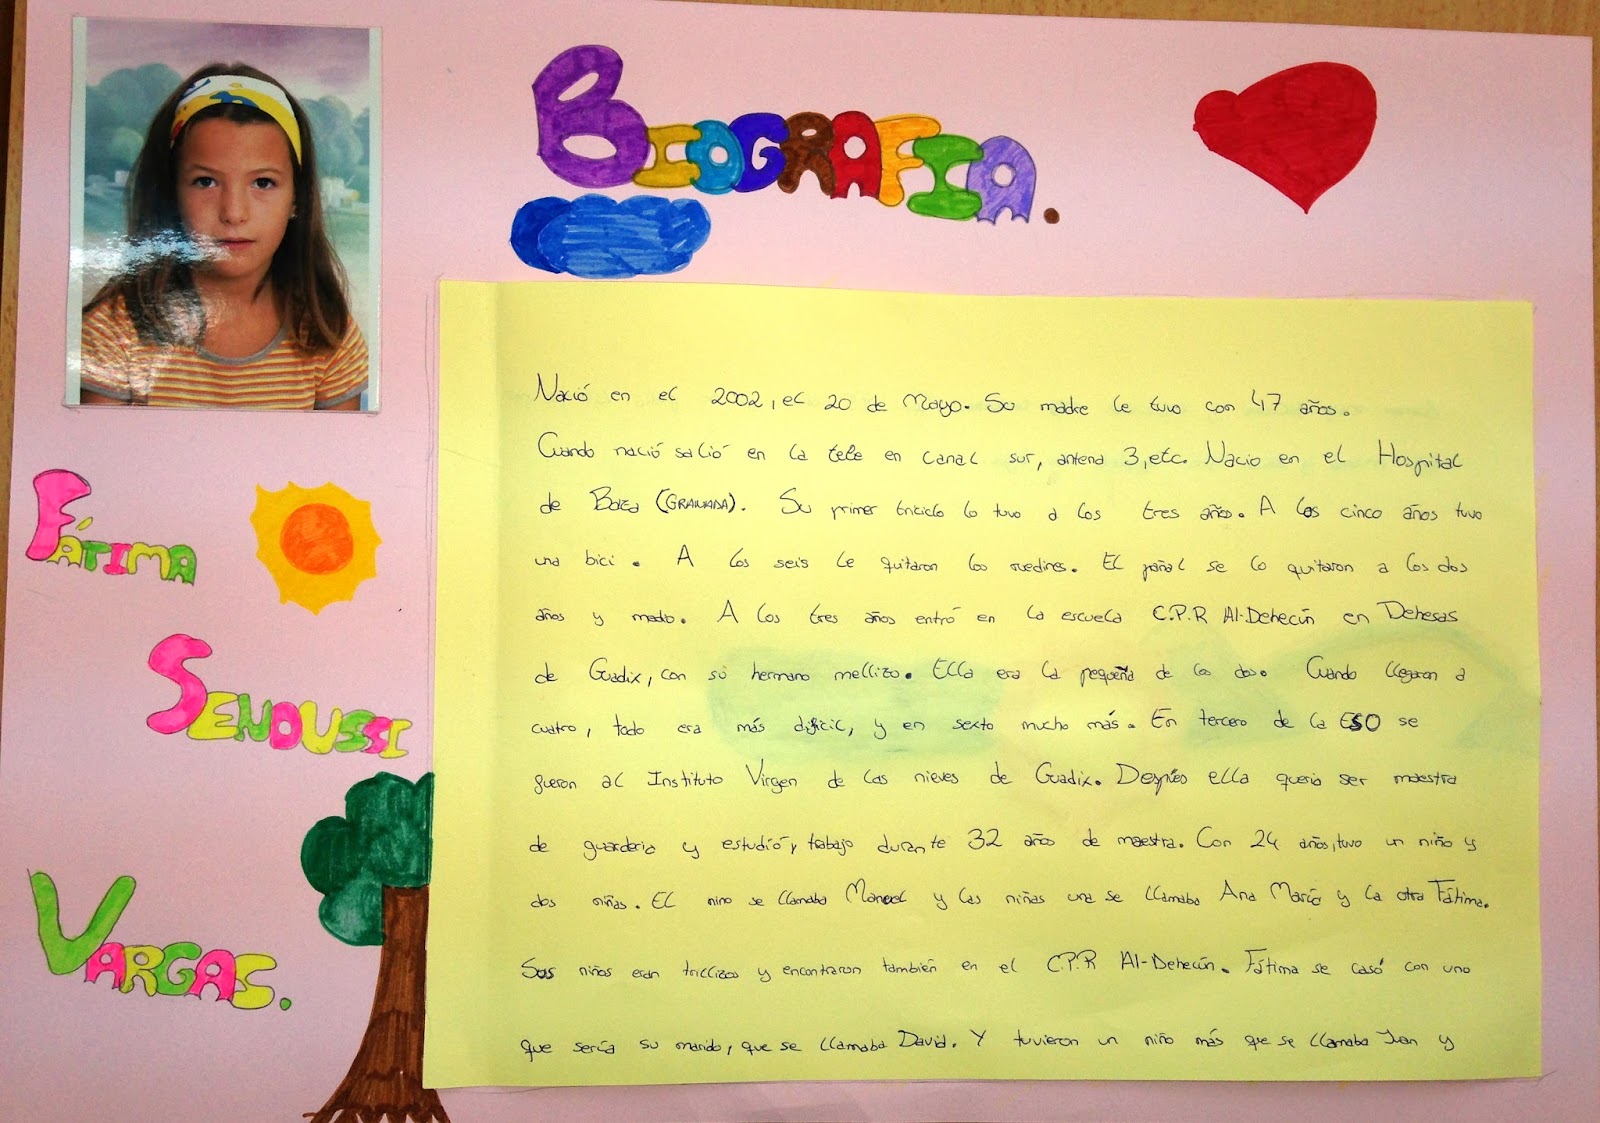 BIOGRAFIA.
FÁTIMA
SENDUSSI
VARGAS.
Nació en el 2002, el 20 de Mayo. Su madre le tuvo con 47 años.
Cuando nació salió en la tele en canal sur, antena 3, etc. Nacio en el Hospital
de Baza (GRANADA). Su primer triciclo lo tuvo a los tres años. A los cinco años tuvo
una bici. A los seis le quitaron los ruedines. El pañal se lo quitaron a los dos
años y medio. A los tres años entró en la escuela C.P.R Al-Dehecún en Dehesas
de Guadix, con su hermano mellizo. Ella era la pequeña de los dos. Cuando llegaron a
cuatro, todo era más dificil, y en sexto mucho más. En tercero de la ESO se
fueron al Instituto Virgen de las nieves de Guadix. Después ella queria ser maestra
de guarderia y estudió y trabajo durante 32 años de maestra. Con 24 años, tuvo un niño y
dos niñas. El nino se llamaba Manuel y las niñas una se llamaba Ana María y la otra Fátima.
Sus niños eran trillizos y encontraron también en el C.P.R Al-Dehecún. Fátima se casó con uno
que sería su marido, que se llamaba David. Y tuvieron un niño más que se llamaba Juan y